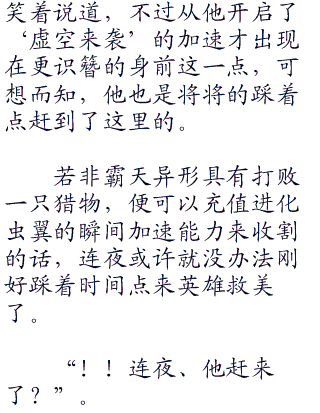 笑着说道，不过从他开启了
‘虚空来袭’的加速才出现
在更识簪的身前这一点，可
想而知，他也是将将的踩着
点赶到了这里的。
若非霸天异形具有打败
一只猎物，便可以充值进化
虫翼的瞬间加速能力来收割
的话，连夜或许就没办法刚
好踩着时间点来英雄救美
了。
“！！连夜、他赶来
了？”。